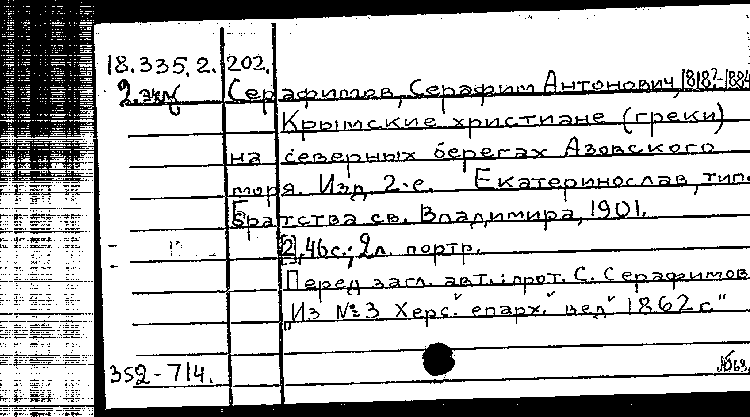 18.335.2.202.
2.экз
Серафимов, Серафим Антонович, 1818?-1884
Крымские христиане (греки)
на северных берегах Азовского
моря. Изд. 2-е. Екатеринослав, тип.
Братства св. Владимира, 1901.
[2], 46с.; 2л. портр.
Перед загл. авт.: прот. С. Серафимов
"Из №3 Херс. епарх. вед" 1862г."
352-714.